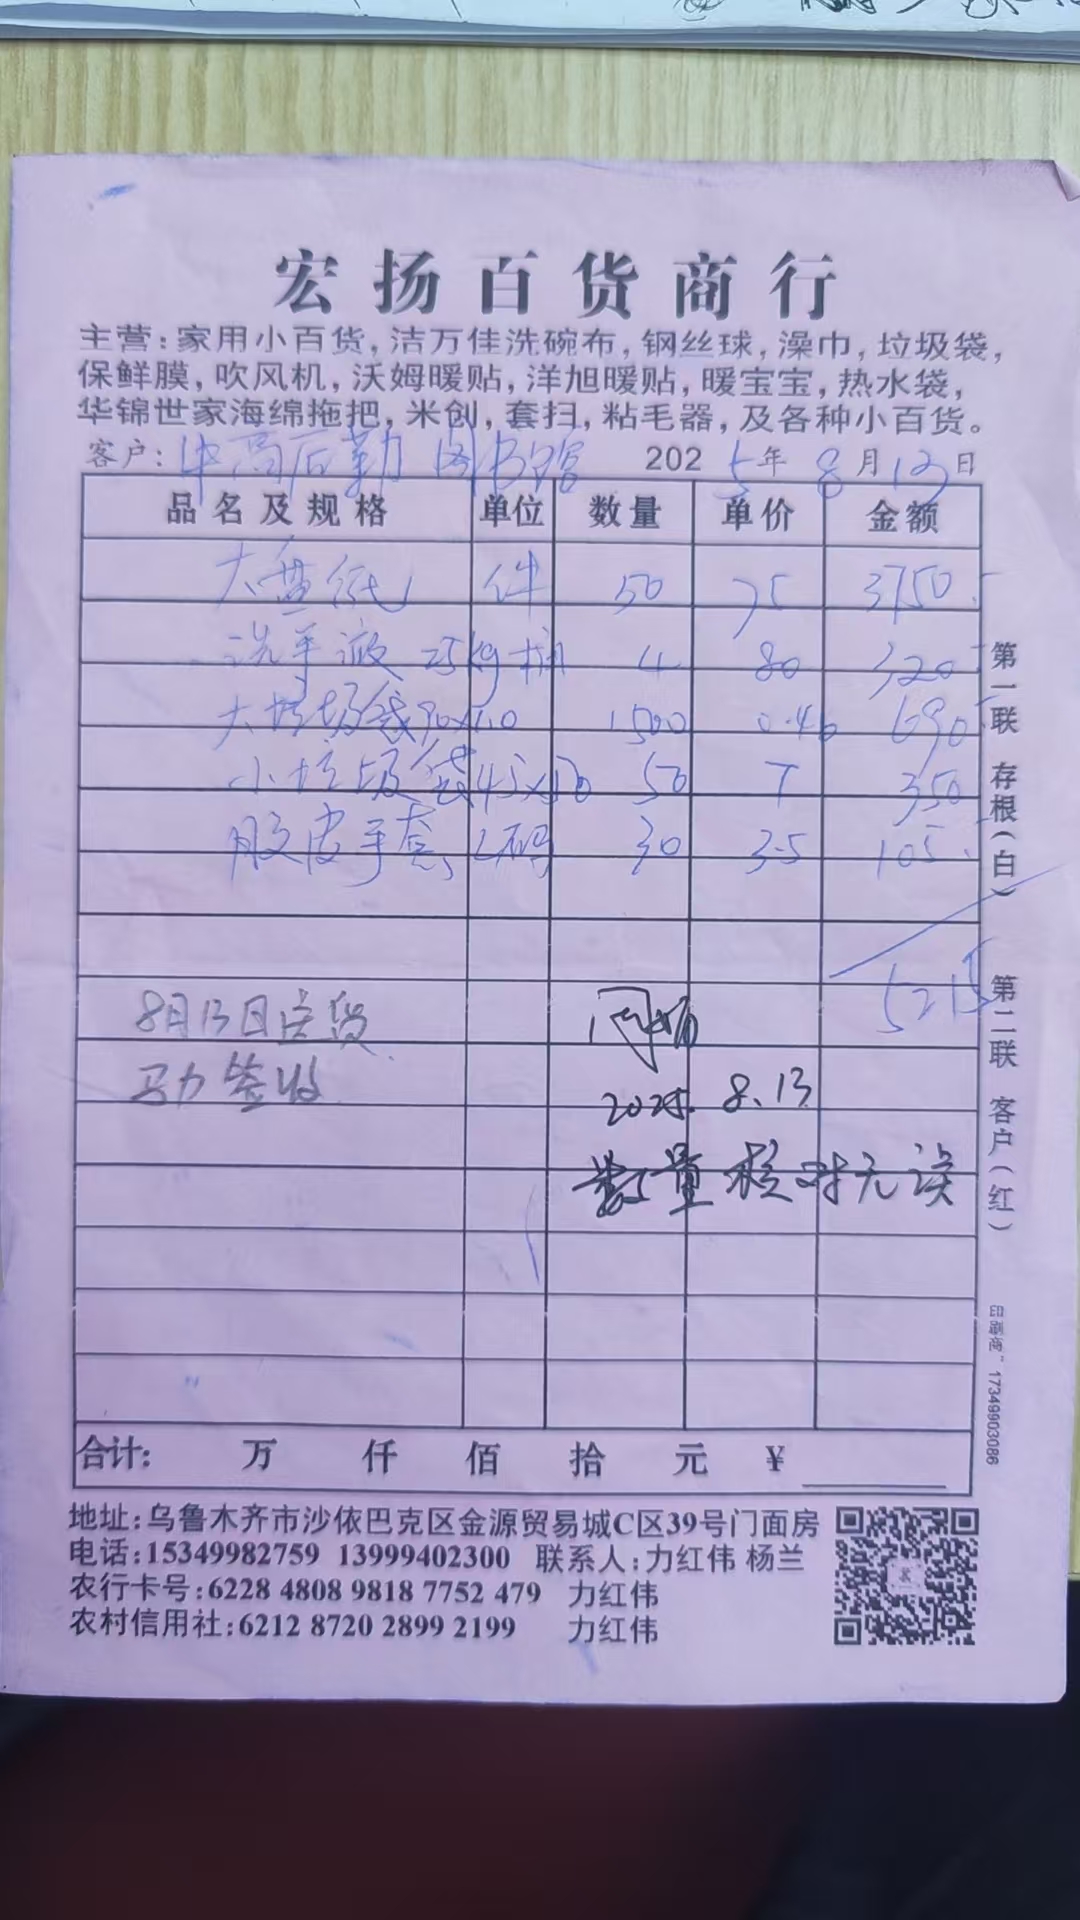 宏扬百货商行
主营:家用小百货,洁万佳洗碗布,钢丝球,澡巾,垃圾袋,
保鲜膜,吹风机,沃姆暖贴,洋旭暖贴,暖宝宝,热水袋,
华锦世家海绵拖把,米创,套扫,粘毛器,及各种小百货。
客户: 后勤 图书馆 2025年8月13日
品名及规格 单位 数量 单价 金额
大盘纸 件 50 75 3750
洗手液 25kg 桶 4 80 320
大垃圾袋 90x110 1500 0.46 690
小垃圾袋 45x50 50 7 350
胶皮手套 L码 30 3.5 105
5215
8月13日送货
马力签收
2025.8.13
数量核对无误
合计: 万 仟 佰 拾 元 ¥
地址:乌鲁木齐市沙依巴克区金源贸易城C区39号门面房
电话:15349982759 13999402300 联系人:力红伟 杨兰
农行卡号:6228 4808 9818 7752 479 力红伟
农村信用社:6212 8720 2899 2199 力红伟
第一联 存根(白)
第二联 客户(红)
印刷商:17349903086